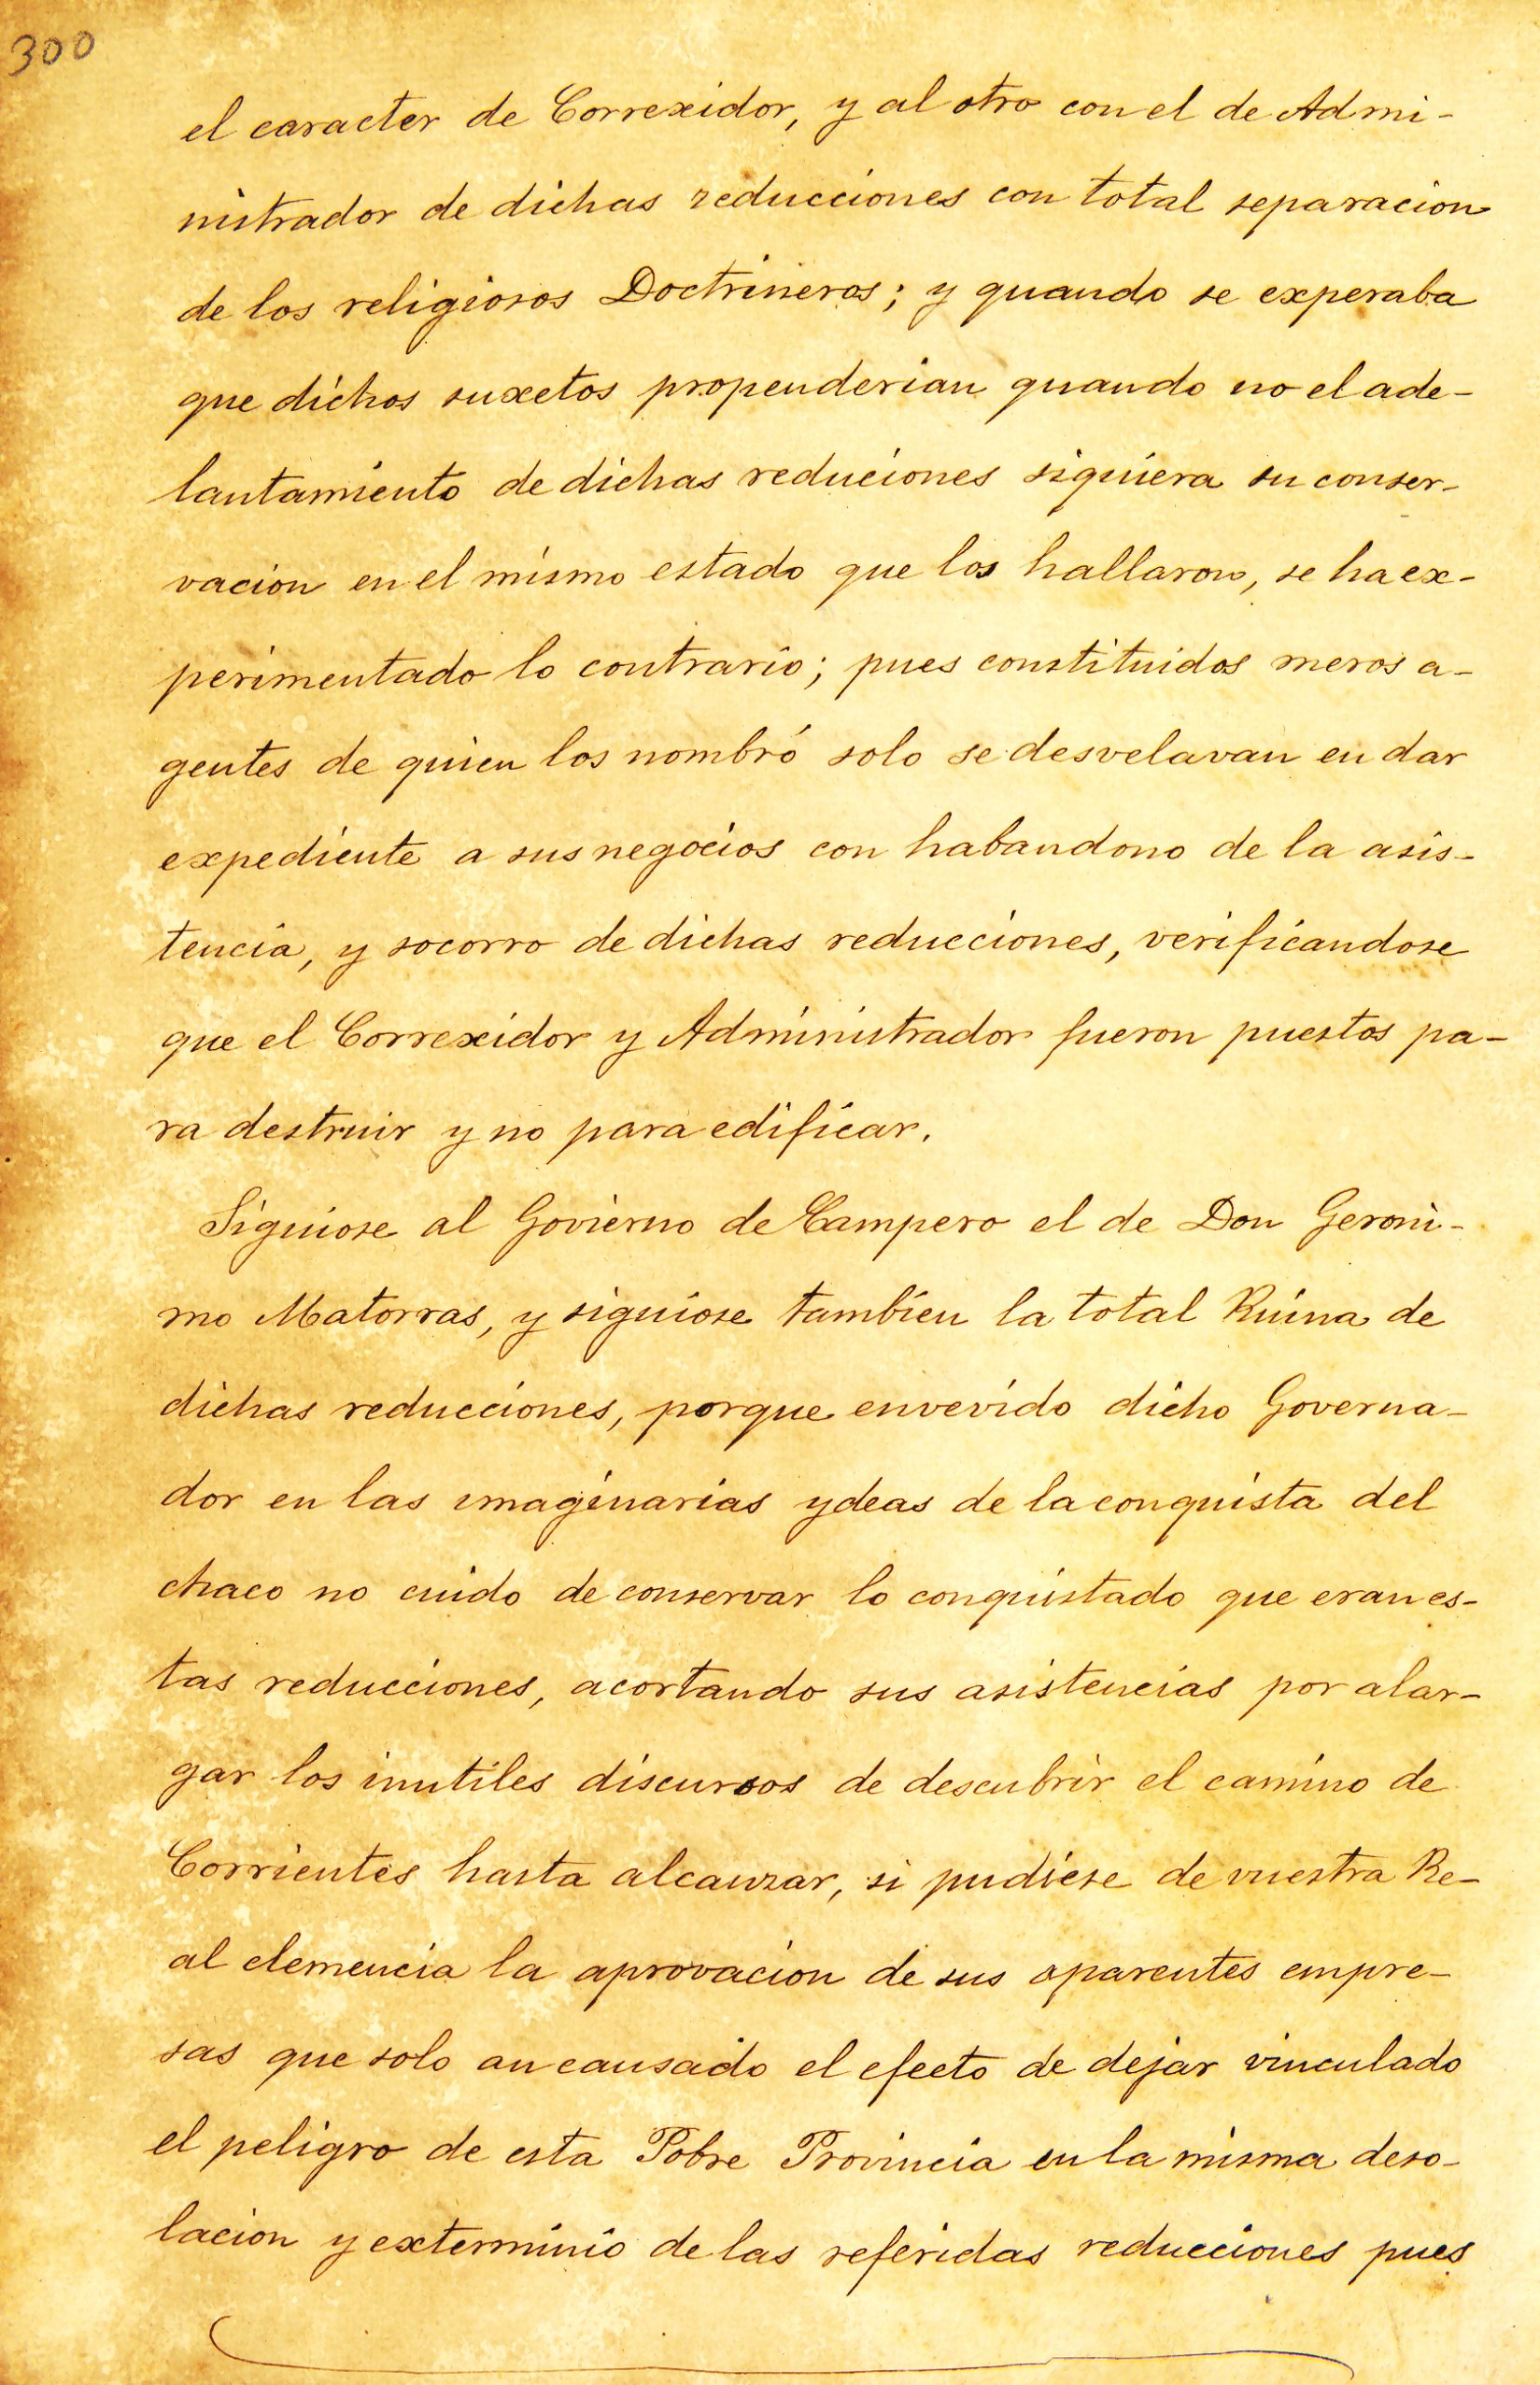 300
el caracter de Correxidor, y al otro con el de Admi-
nistrador de dichas reducciones con total separacion
de los religiosos Doctrineros; y quando se experaba
que dichos suxetos propenderian quando no el ade-
lantamiento de dichas reduciones siquiera su conser-
vacion en el mismo estado que los hallaron, se ha ex-
perimentado lo contrario; pues constituidos meros a-
gentes de quien los nombró solo se desvelavan en dar
expediente a sus negocios con habandono de la asis-
tencia, y socorro de dichas reducciones, verificandose
que el Correxidor y Administrador fueron puestos pa-
ra destruir y no para edificar.
Siguiose al Govierno de Campero el de Don Geroni-
mo Matorras, y siguiose tambien la total Ruina de
dichas reducciones, porque envevido dicho Governa-
dor en las imaginarias ydeas de la conquista del
chaco no cuido de conservar lo conquistado que eran es-
tas reducciones, acortando sus asistencias por alar-
gar los inutiles discursos de descubrir el camino de
Corrientes hasta alcanzar, si pudiese de vuestra Re-
al clemencia la aprovacion de sus aparentes empre-
sas que solo an causado el efecto de dejar vinculado
el peligro de esta Pobre Provincia en la misma deso-
lacion y exterminio de las referidas reducciones pues